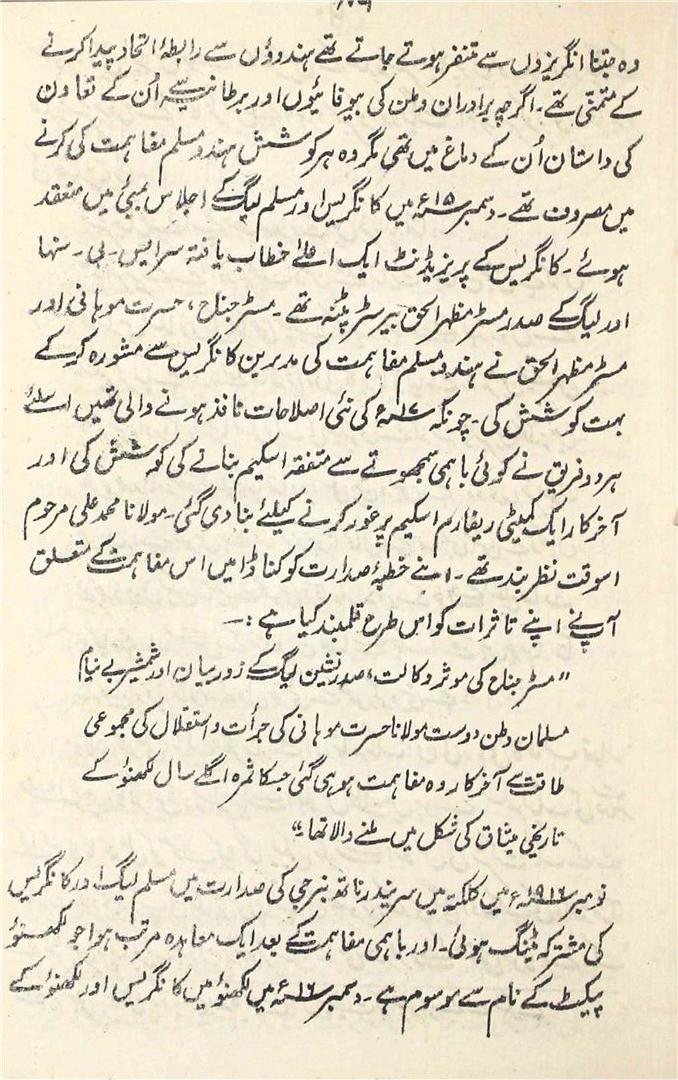 وہ جتنا انگریزوں سے متنفر ہوتے جاتے تھے ہندوؤں سے رابطۂ اتحاد پیدا کرنے
کے متمنی تھے۔ اگرچہ برادران وطن کی بیوفائیوں اور برطانیہ سے اُن کے تعاون
کی داستان اُن کے دماغ میں تھی مگر وہ ہر کوشش ہندو مسلم مفاہمت کی کرنے
میں مصروف تھے۔ دسمبر ۱۵ء میں کانگریس اور مسلم لیگ کے اجلاس بمبئی میں منعقد
ہوئے۔ کانگریس کے پریزیڈنٹ ایک اعلےٰ خطاب یافتہ سر ایس۔ بی۔ سنہا
اور لیگ کے صدر مسٹر مظہر الحق بیرسٹر پٹنہ تھے۔ مسٹر جناح، حسرت موہانی اور
مسٹر مظہر الحق نے ہندو مسلم مفاہمت کی مدبرین کانگریس سے مشورہ کر کے
بہت کوشش کی۔ چونکہ ۱۷ء کی نئی اصلاحات نافذ ہونے والی تھیں اسلئے
ہر دو فریق نے کوئی باہمی سمجھوتے سے متفقہ اسکیم بنانے کی کوشش کی اور
آخر کار ایک کمیٹی ریفارم اسکیم پر غور کرنے کیلئے بنا دی گئی۔ مولانا محمد علی مرحوم
اسوقت نظر بند تھے۔ اپنے خطبۂ صدارت کوکناڈا میں اس مفاہمت کے متعلق
آپ نے اپنے تاثرات کو اس طرح قلمبند کیا ہے :۔
"مسٹر جناح کی موثر وکالت، صدر نشین لیگ کے زور بیان اور شمشیر بے نیام
مسلمان وطن دوست مولانا حسرت موہانی کی جرأت و استقلال کی مجموعی
طاقت سے آخر کار وہ مفاہمت ہو ہی گئی جسکا ثمرہ اگلے سال لکھنؤ کے
تاریخی میثاق کی شکل میں ملنے والا تھا۔"
نومبر ۱۹۱۶ء میں کلکتہ میں سریندر ناتھ بنرجی کی صدارت میں مسلم لیگ اور کانگریس
کی مشترکہ میٹنگ ہوئی۔ اور باہمی مفاہمت کے بعد ایک معاہدہ مرتب ہوا جو لکھنؤ
پیکٹ کے نام سے موسوم ہے۔ دسمبر ۱۶ء میں لکھنؤ میں کانگریس اور لکھنؤ کے